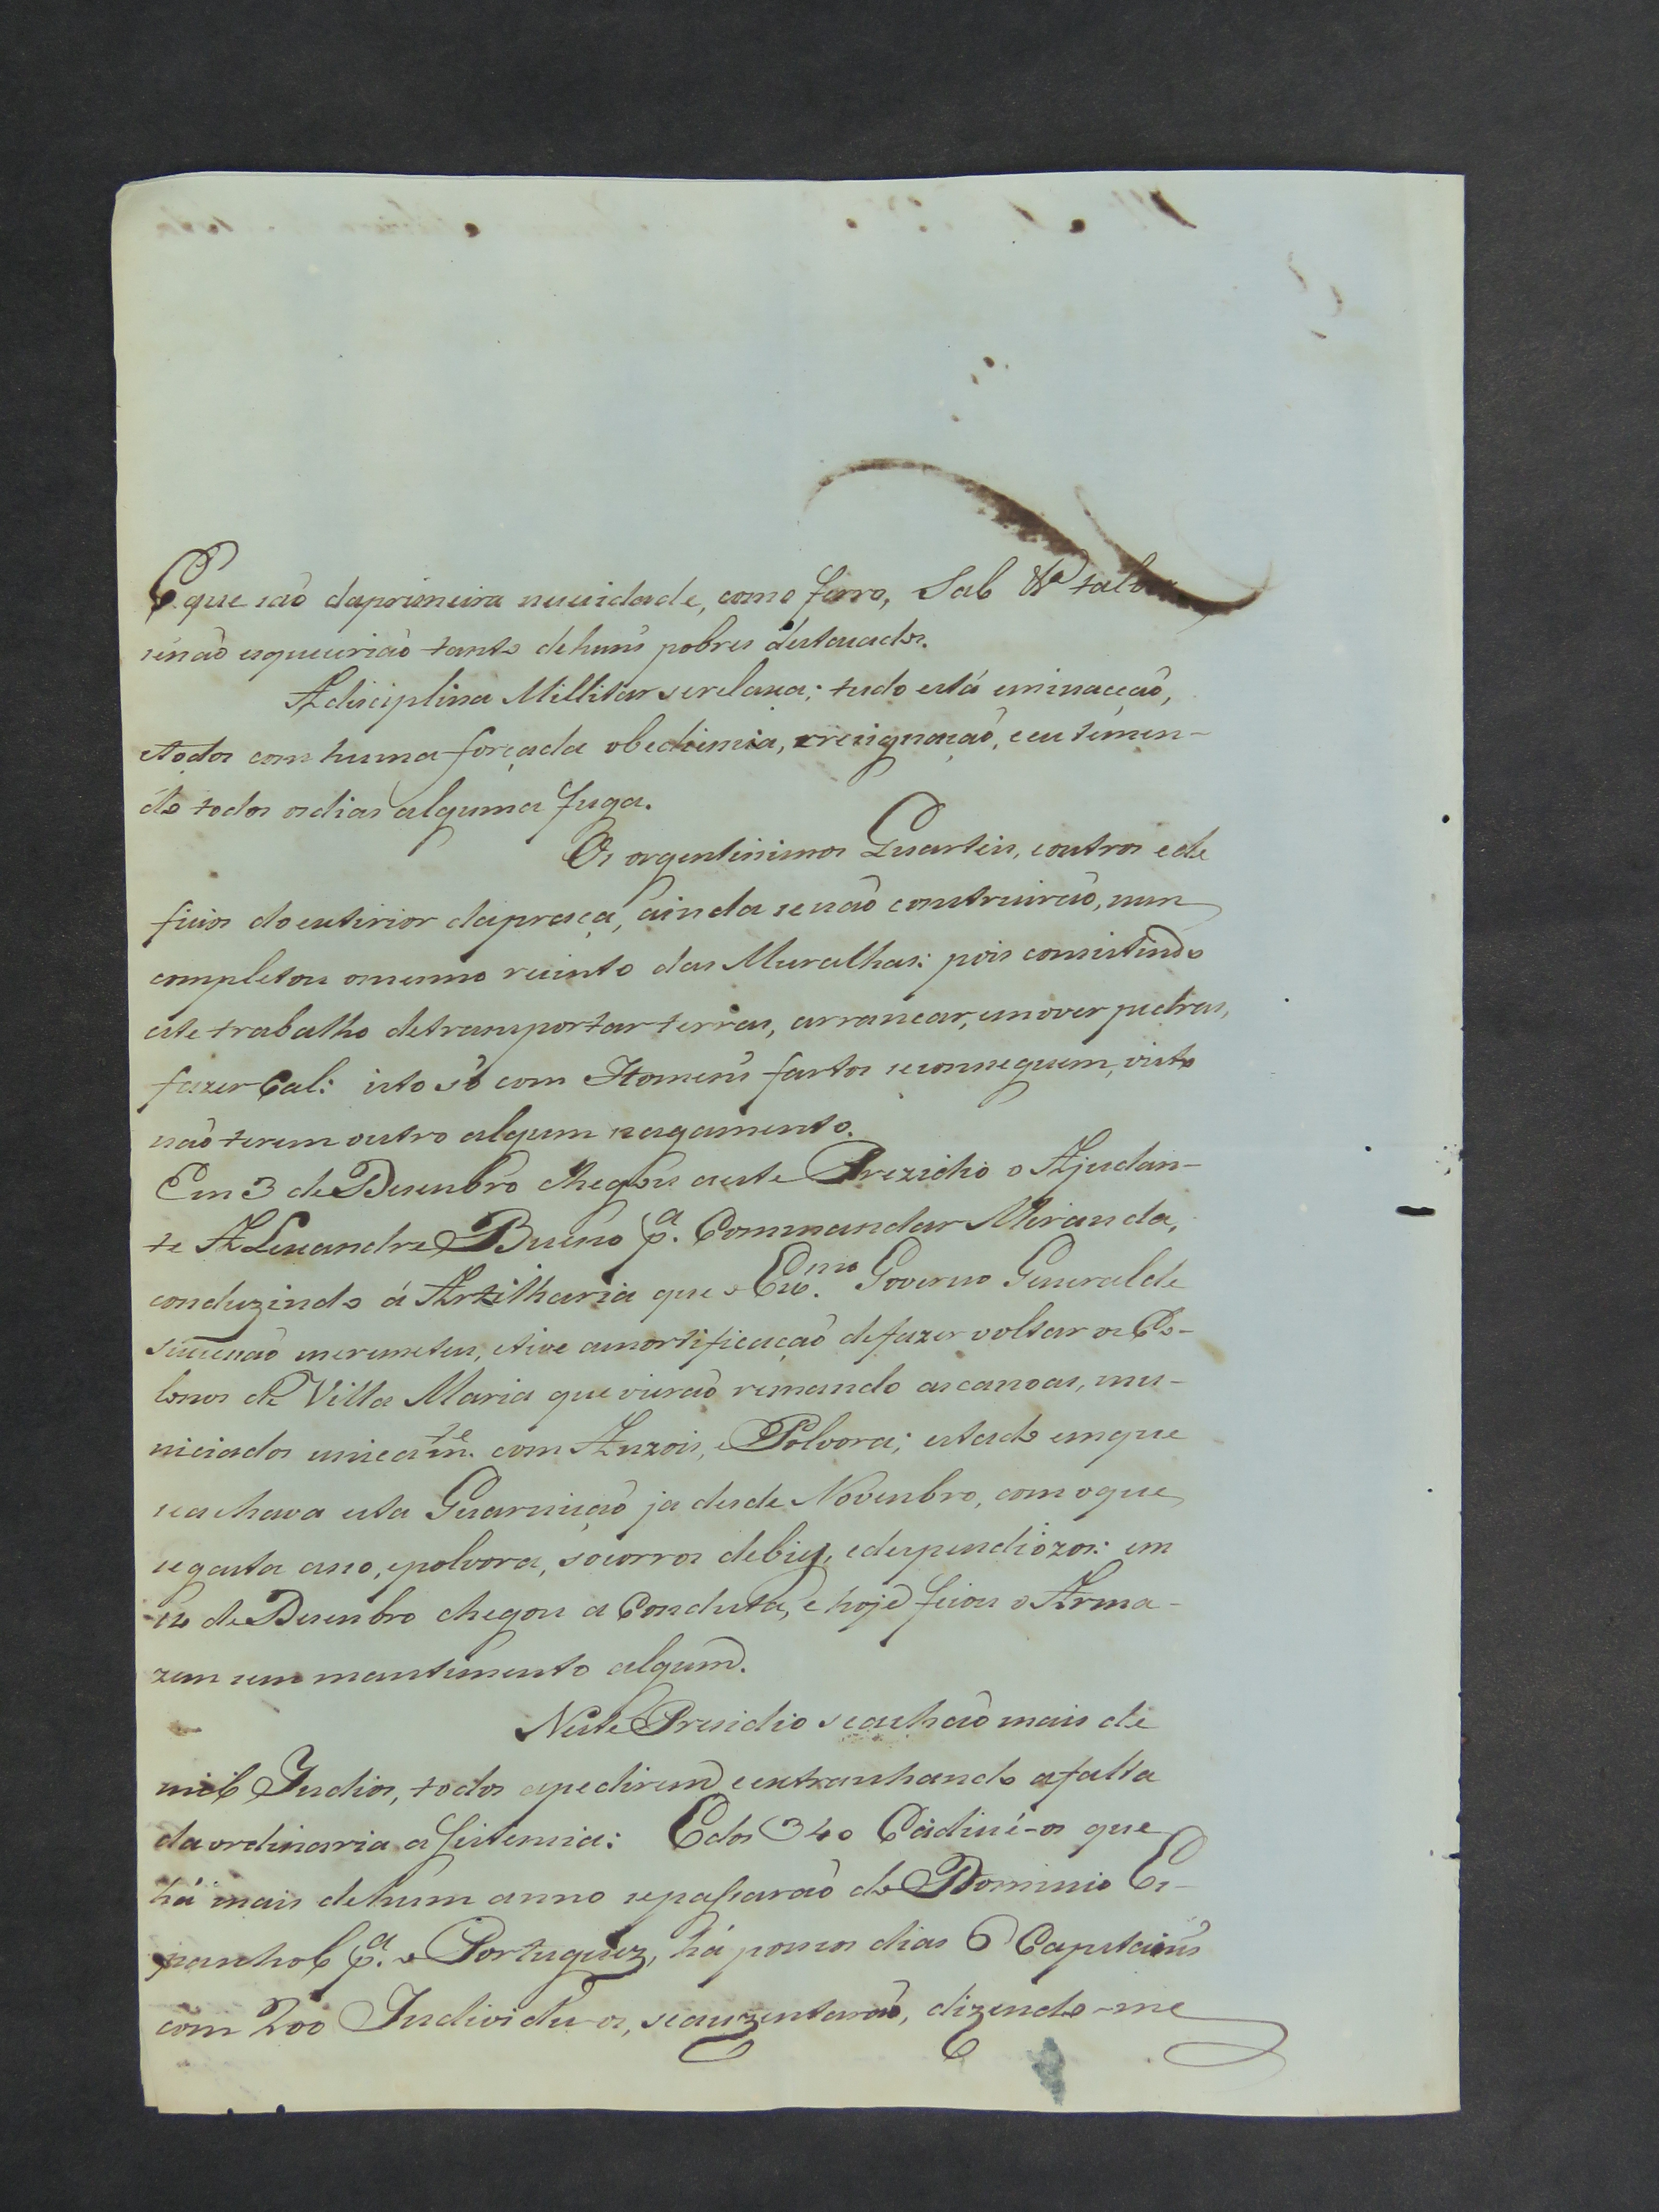 E que saõ daprimeira necicidade, como ferro, Sal &ª talves
senaõ esqueceriaõ tanto dehuns pobres destacados.
A disciplina Millitar serelaxa; tudo está eminacçaõ,
etodos com huma forçada obediencia, erezignaçaõ, e eu temen-
do todos osdias alguma fuga.
Os orgentissimos Quarteis, eoutros ede
ficios doenterior dapraça, ainda senaõ construiraõ, nem
completou omesmo recinto das Muralhas: pois consistindo
este trabalho detransportar terras, arrancar, emover pedras,
fazer Cal: isto só com Homens fartos seconseguem, visto
naõ terem outro algum pagamento.
Em 3 de Desembro chegou aeste Prezidio o Ajudan-
te ALexandre Bueno p.ª Commandar Miranda,
conduzindo á Artilharia que o Exc.mo Governo Generalde
sucessaõ meremeteu, etive amortificaçaõ defazer voltar os Co-
lonos de Villa Maria que vieraõ remando ascanoas, mu-
niciados unicam.te com Anzois, e Polvora; estado emque
seachava esta Guarniçaõ ja desde Novembro, com oque
segasta aço, epolvora, socorros debiey, edespendiozos: em
12 de Desembro chegou a Conduta, e hoje ficou o Arma-
zem sem mantimento algum.
Neste Presidio seachaõ mais de
mil Indios, todos apedirem eextranhando afalta
daordinaria assistencia: Edos 340 Cadiué-os que
há mais dehum anno sepassaraõ do Dominio Es-
panhol p.ª o Portuguez, há poucos dias 6 Capitains
com 200 Individuos, seauzentaraõ, dizendo-me